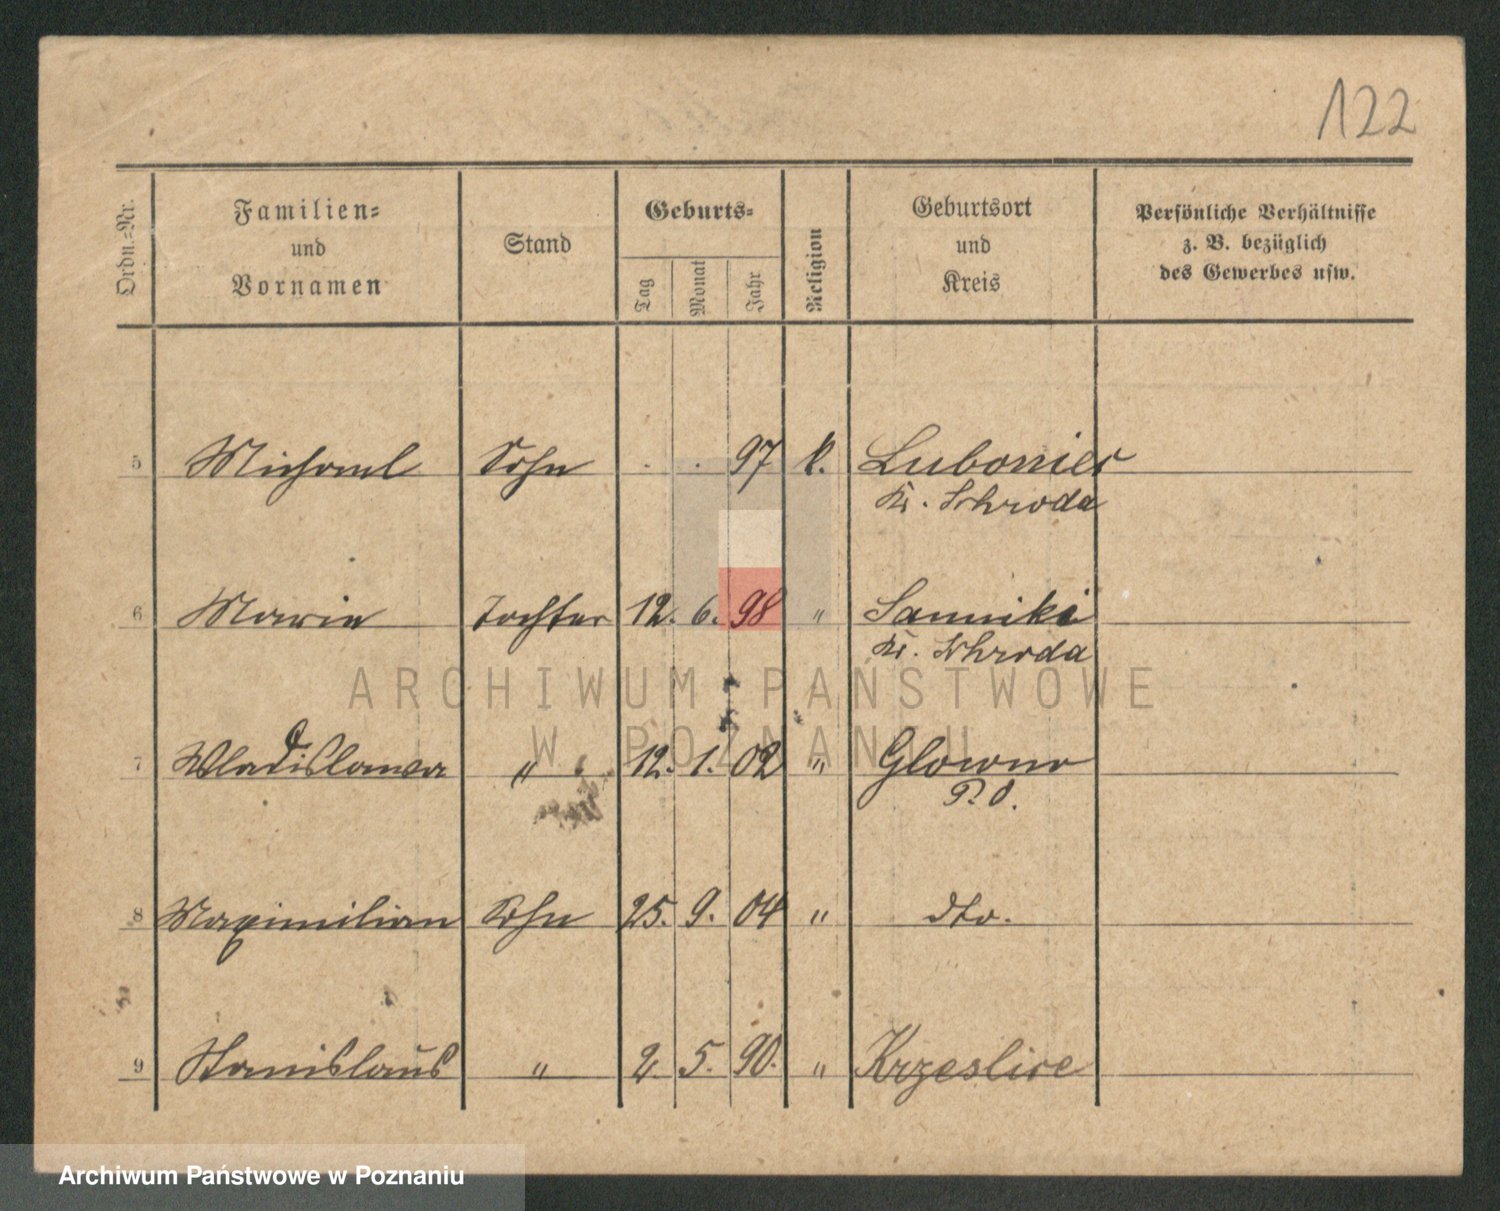 122
Ordn.-Nr.
Familien-
und
Vornamen
Stand
Geburts-
Tag
Monat
Jahr
Religion
Geburtsort
und
Kreis
Persönliche Verhältnisse
z. B. bezüglich
des Gewerbes usw.
5 Michael Sohn . . 97 k. Lubonier
Kr. Schroda
6 Marie Tochter 12. 6. 98 " Sanniki
Kr. Schroda
ARCHIWUM PAŃSTWOWE
W POZNANIU
7 Wladislawa " 12. 1. 02 " Glowno
P. O.
8 Maximilian Sohn 25. 9. 04 " dto.
9 Stanislaus " 2. 5. 90. " Krzeslice
Archiwum Państwowe w Poznaniu